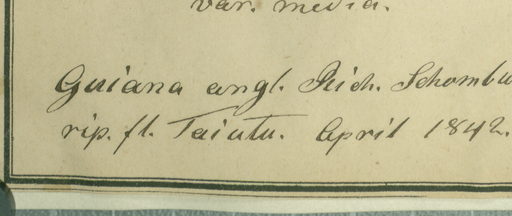 var. media.
Guiana angl. Rich. Schombu
rip. fl. Taiutu. April 1842.